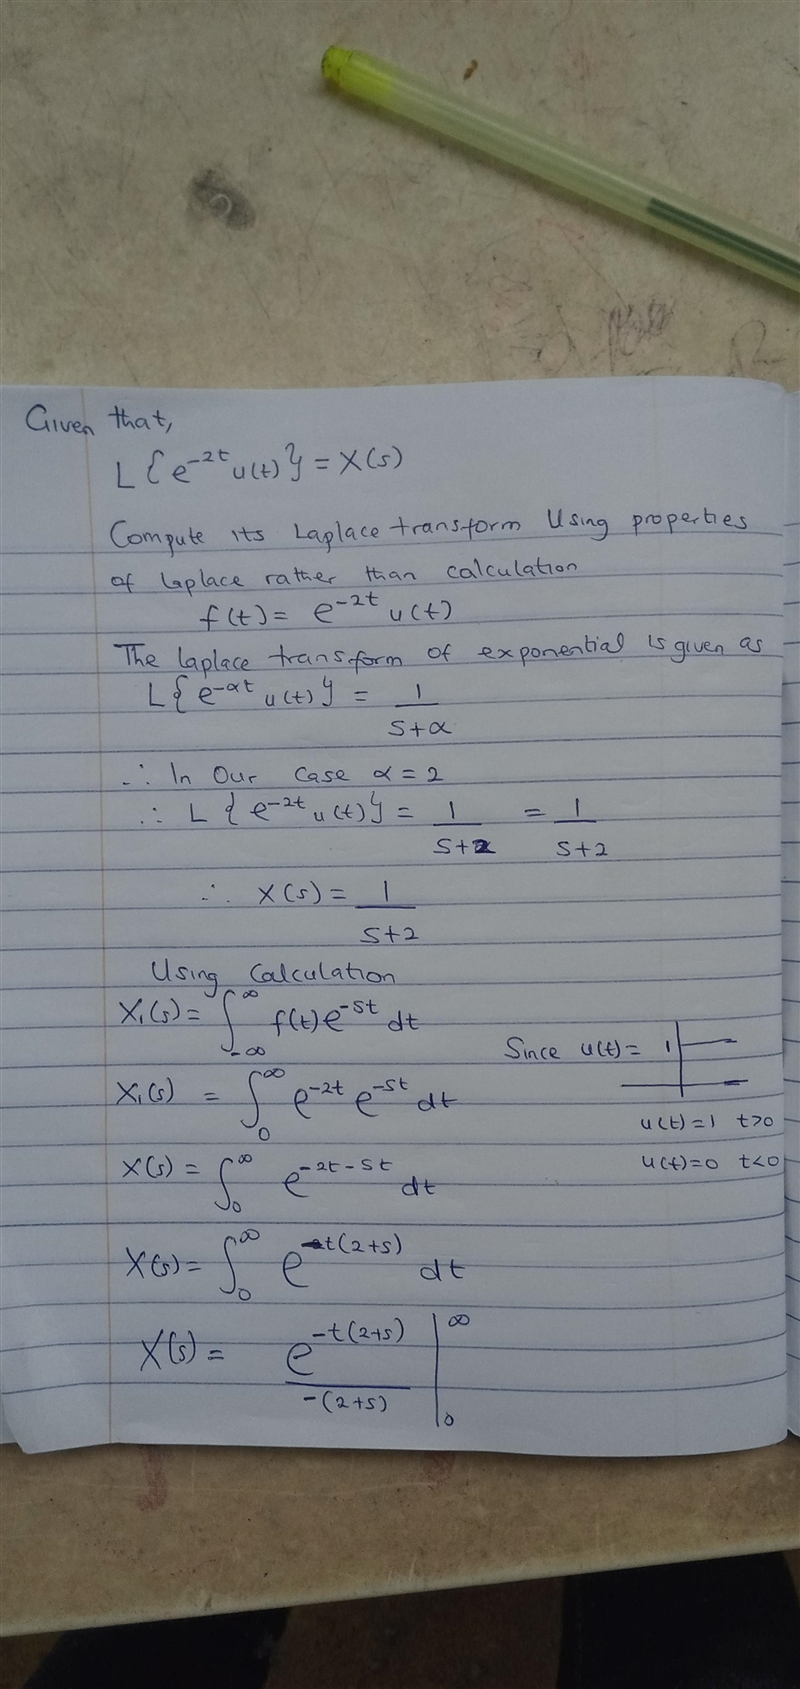 Given that,
L{e^-2t u(t)} = X(s)
Compute its Laplace transform Using properties
of laplace rather than calculation
f(t) = e^-2t u(t)
The laplace transform of exponential is given as
L{e^-αt u(t)} = 1/(S+α)
∴ In Our case α = 2
∴ L{e^-2t u(t)} = 1/(S+2) = 1/(S+2)
∴ X(s) = 1/(S+2)
Using Calculation
X₁(s) = ∫_-∞^∞ f(t) e^-St dt
Since u(t) = 1
X₁(s) = ∫_0^∞ e^-2t e^-St dt
u(t) = 1 t>0
X(s) = ∫_0^∞ e^-2t-St dt
u(t) = 0 t<0
X(s) = ∫_0^∞ e^-t(2+s) dt
X(s) = e^-t(2+s)/-(2+s) |_0^∞